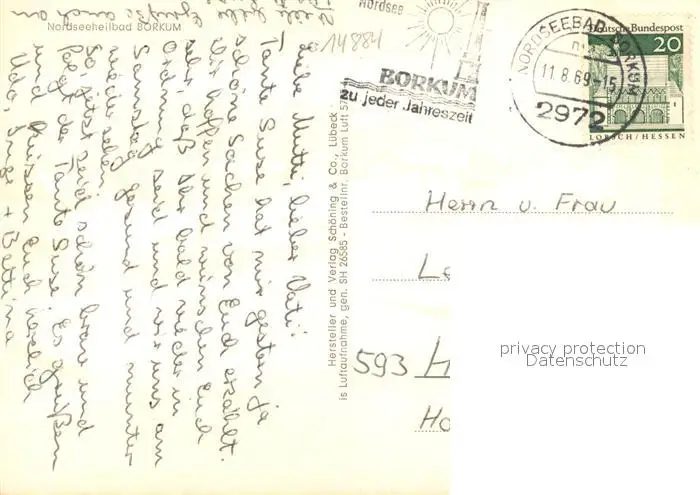 Nordseeheilbad BORKUM
14884
Nordsee
BORKUM
zu jeder Jahreszeit
NORDSEEBAD BORKUM
11.8.69-15
2972
Deutsche Bundespost
20
LORSCH/HESSEN
Grüße auch an
Liebe Mutti, lieber Vati!
Tante Suse hat mir gestern ja
schöne Sachen von Euch erzählt.
Wir hoffen und wünschen Euch
sehr, daß Ihr bald wieder in
Ordnung seid und wir uns am
Samstag gesund und munter
wiedersehen.
So, jetzt seid schön brav und
folgt der Tante Suse. Es grüßen
und küssen Euch herzlich
Udo, Inge + Bettina
Hersteller und Verlag Schöning & Co., Lübeck
is Luftaufnahme, gen. SH 26585 - Bestellnr. Borkum Luft 57
Herrn u. Frau
Le
593 H
Ho
privacy protection
Datenschutz